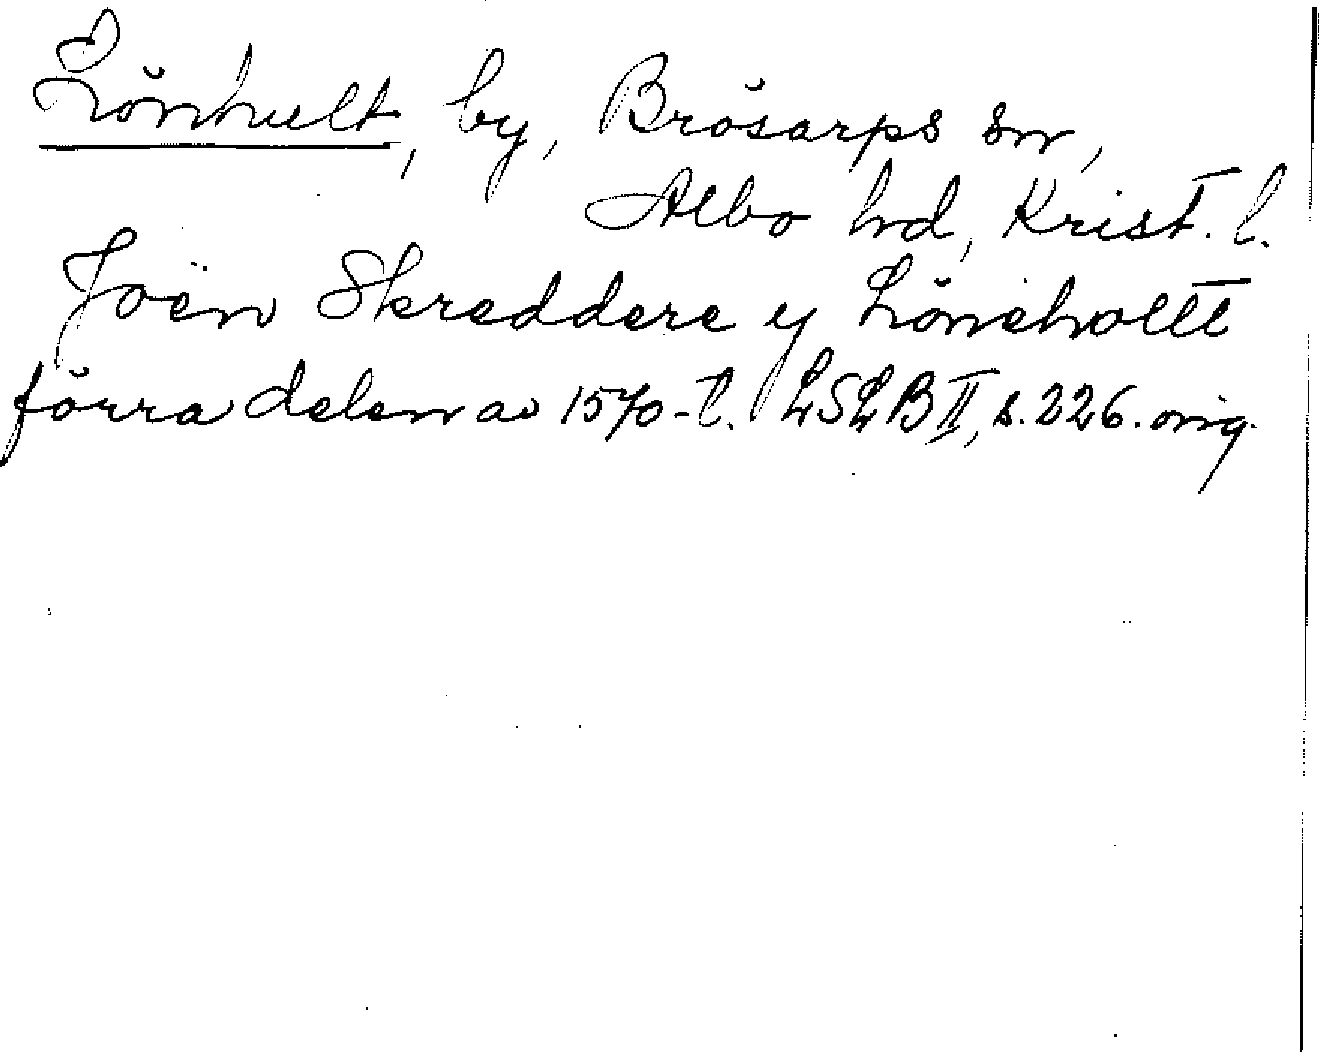 Lönhult, by, Brösarps sn,
Albo hd, Krist. l.
Joën Skreddere y Löneholtt
förra delen av 1570-t. LSLB II, s. 226. orig.